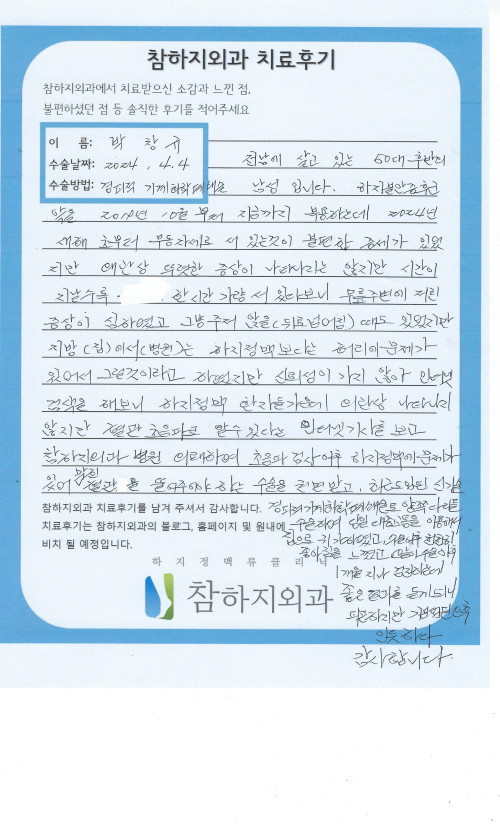 참하지외과 치료후기
참하지외과에서 치료받으신 소감과 느낀 점,
불편하셨던 점 등 솔직한 후기를 적어주세요
이 름: 박 창 규
수술날짜: 2024. 4. 4 전남에 살고 있는 50대 후반의
수술방법: 경피적 기계화학폐쇄술 남성 입니다. 하지불안증후군
약을 2010년 10월 부터 지금까지 복용하는데 2024년
새해 초부터 부동자세로 서 있는것이 불편한 증세가 있었
지만 외관상 뚜렷한 증상이 나타나지는 않지만 시간이
지날수록 한시간 가량 서 있다보니 무릎주변에 저린
증상이 심하였고 그방주저 앉을(뒤로넘어짐) 때도 있었지만
지방(집)에서(병원)는 하지정맥보다는 허리에 문제가
있어서 그럴것이라고 하였지만 신뢰성이 가지 않아 인터넷
검색을 해보니 하지정맥 환자들가운데 외관상 나타나지
않지만 혈관 초음파로 알수있다는 인터넷기사를 보고
참하지외과 병원 의뢰하여 초음파 검사이후 하지정맥에 문제가
있어 막힌 혈관을 뚫어주어야 하는 수술을 권면받고,
참하지외과 치료후기를 남겨 주셔서 감사합니다. 경피적기계화학폐쇄술로 양쪽다리를
치료후기는 참하지외과의 블로그, 홈페이지 및 원내에 수술하여 당일 대중교통을 이용해서
비치 될 예정입니다. 집으로 귀가하였고, 수술이후 확연히
좋아짐을 느꼈고
하지정맥류클리닉
1개월 지나 검진하는데
참하지외과
좋은 결과를 듣게되니
감사합니다.